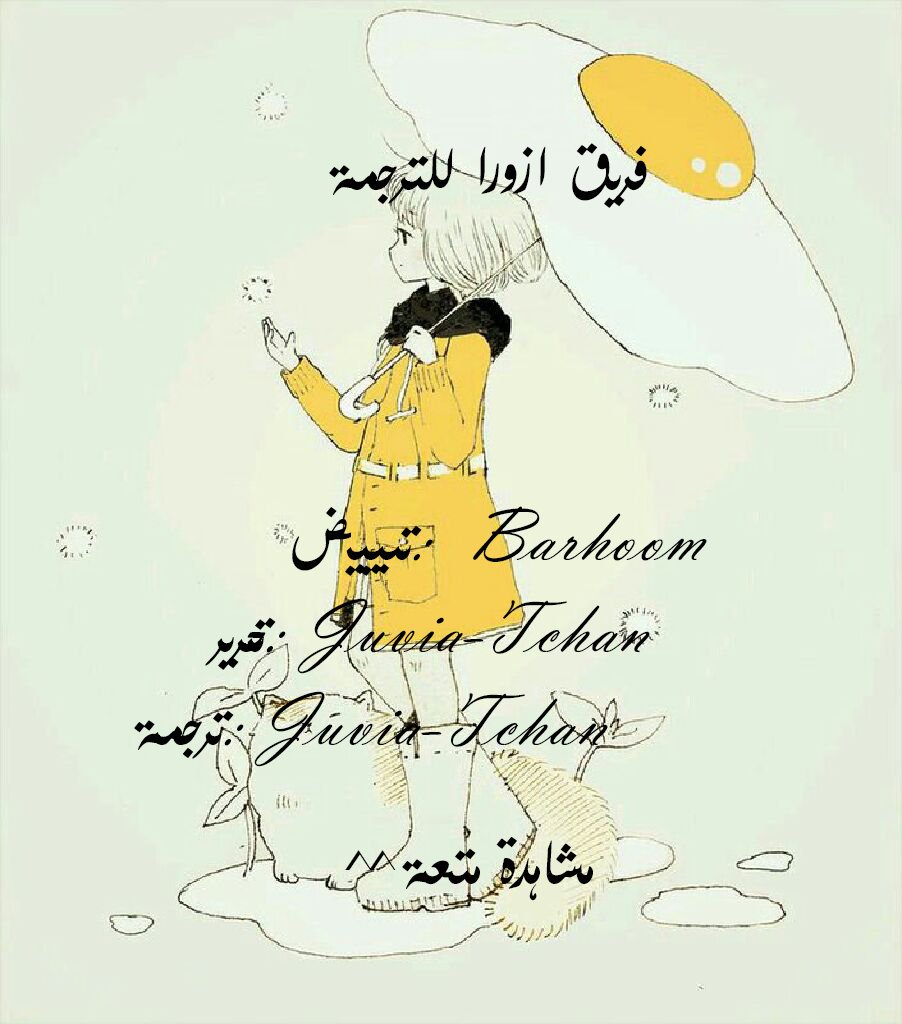 فريق ازورا للترجمة
تبييض: Barhoom
تحرير: Juvia-Tchan
ترجمة: Juvia-Tchan
مشاهدة متعة ^^